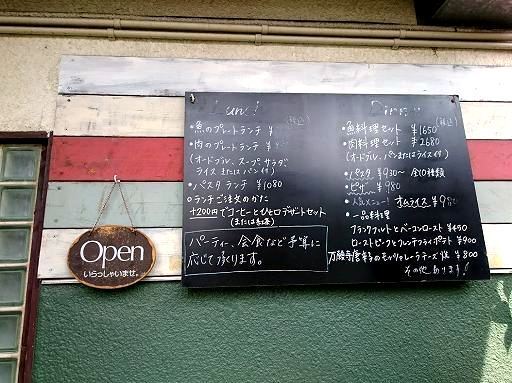 Lunch
(税込)
・魚のプレートランチ ¥
・肉のプレートランチ ¥
(オードブル、スープ、サラダ
ライス またはパン付)
・パスタ ランチ ¥1080
・ランチご注文のかた
+200円でコーヒーとひとロデザートセット
(または紅茶)
パーティー、会食など予算に
応じて承ります。
Dinner
(税込)
・魚料理セット ¥1650
・肉料理セット ¥2680
(オードブル、パンまたはライス付)
・パスタ ¥930〜 全10種類
・ピザ ¥980
・人気メニュー! オムライス ¥9
・一品料理
ブラックフルトとベーコンロースト ¥650
ローストビーフとフレンチフライポテト ¥900
モッツァレーラチーズ 焼 ¥800
その他あります!
Open
いらっしゃいませ。